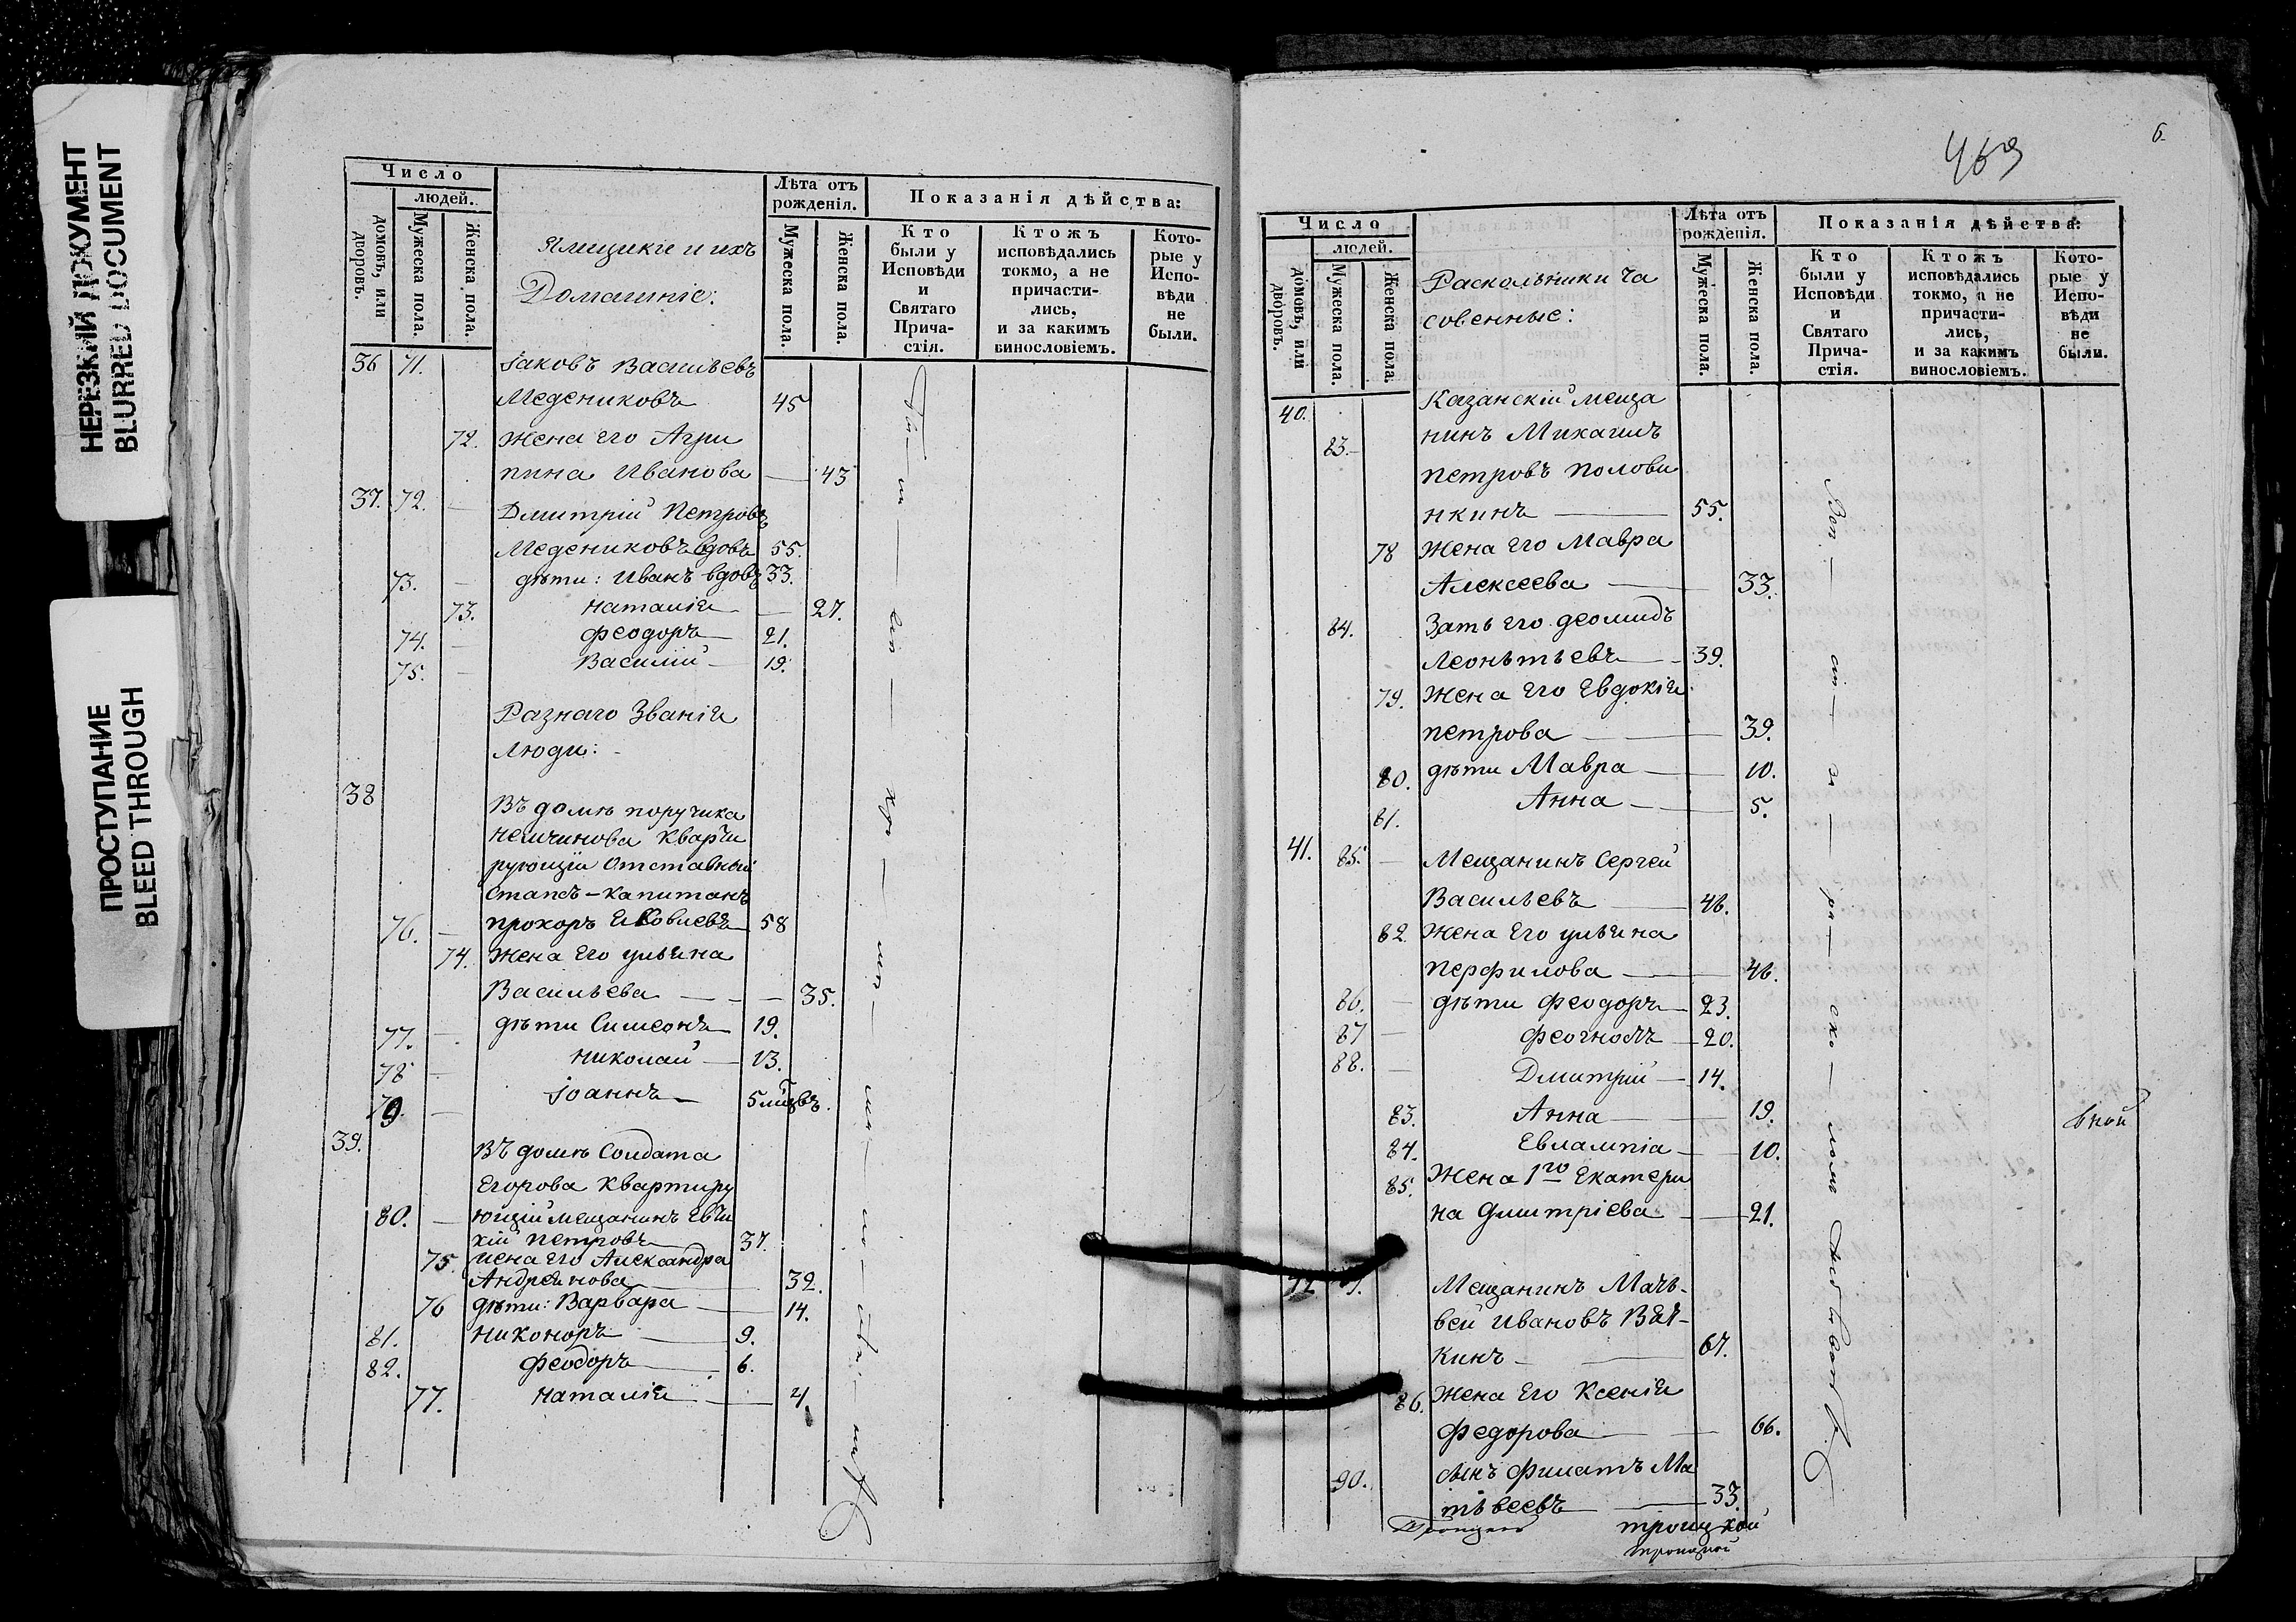 НЕРЕЗКИЙ ДОКУМЕНТ
BLURRED DOCUMENT
ПРОСТУПАНИЕ
BLEED THROUGH
Число
людей.
домовъ, или дворовъ.
Мужеска пола.
Женска пола.
Ямщикіе и ихъ
Домашніе:
Лѣта отъ рожденія.
Мужеска пола.
Женска пола.
Показанія дѣйства:
Кто были у Исповѣди и Святаго Причастія.
Ктожъ исповѣдались токмо, а не причастились, и за какимъ винословіемъ.
Которые у Исповѣди не были.
36 71. Іаковъ Васильевъ
Медениковъ 45
72. Жена его Агри
пина Иванова — 43
37. 72. — Дмитрій Петровъ
Медениковъ вдовъ 55.
73. — дѣти: Иванъ вдовъ 33.
73. Наталія — 27.
74. — Феодоръ — 21.
75. — Василій — 19.
Разнаго Званія
люди:
38 Въ домѣ поручика
Немчинова Кварти
рующій Отставный
Стапсъ-капитанъ
76. — Прохоръ 58
74. Жена Его Ульяна
Васильева — — — 35.
77. — дѣти Симеонъ — 19.
78 — Николай — 13.
79. — Іоаннъ — 5
39. Въ домѣ Солдата
Егорова Квартиру
80. — ющій мещанинъ Евти
хій Петровъ 37.
75. жена Его Александра
Андреянова — 32.
76 дѣти: Варвара — 14.
81. Никоноръ — 9.
82. Феодоръ — 6.
77. Наталія — 4.
469
6.
Число
людей.
домовъ, или дворовъ.
Мужеска пола.
Женска пола.
Раскольники ча
совенные:
Лѣта отъ рожденія.
Мужеска пола.
Женска пола.
Показанія дѣйства:
Кто были у Исповѣди и Святаго Причастія.
Ктожъ исповѣдались токмо, а не причастились, и за какимъ винословіемъ.
Которые у Исповѣди не были.
40. Казанскій меща
83. — нинъ Михаилъ
Петровъ Полови
нкинъ — 55.
78 Жена Его Мавра
Алексеева — 33.
84. Зять его Деомидъ
Леонътьевъ — 39.
79. Жена Его Евдокія
Петрова — 39.
80. дѣти Мавра — 10.
81. Анна — 5.
41. 85. — Мещанинъ Сергей
Васильевъ — 46.
82. Жена Его Ульяна
Перфилова — 46.
86. — дѣти Феодоръ — 23.
87 — Феогностъ — 20.
88. — Дмитрій — 14.
83. Анна — 19.
84. Евлампіа — 10.
85. Жена 1го Екатери
на Дмитріева — 21.
42 Мещанинъ Матъ-
вей Ивановъ Вят-
кинъ — 67.
86. Жена Его Ксенія
Федорова — 66.
90. сынъ Филатъ Ма
тѣвеевъ — 33.
троицкой
троицкой